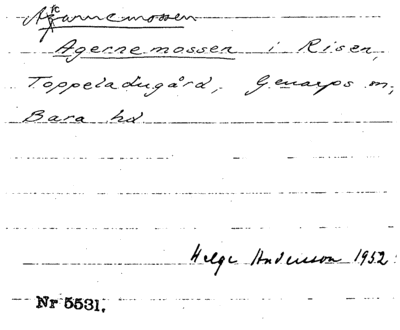 Agernemossen i Risen,
Toppeladugård, Genarps sn,
Bara hd
Helge Anderson 1952.
Nr 5531.